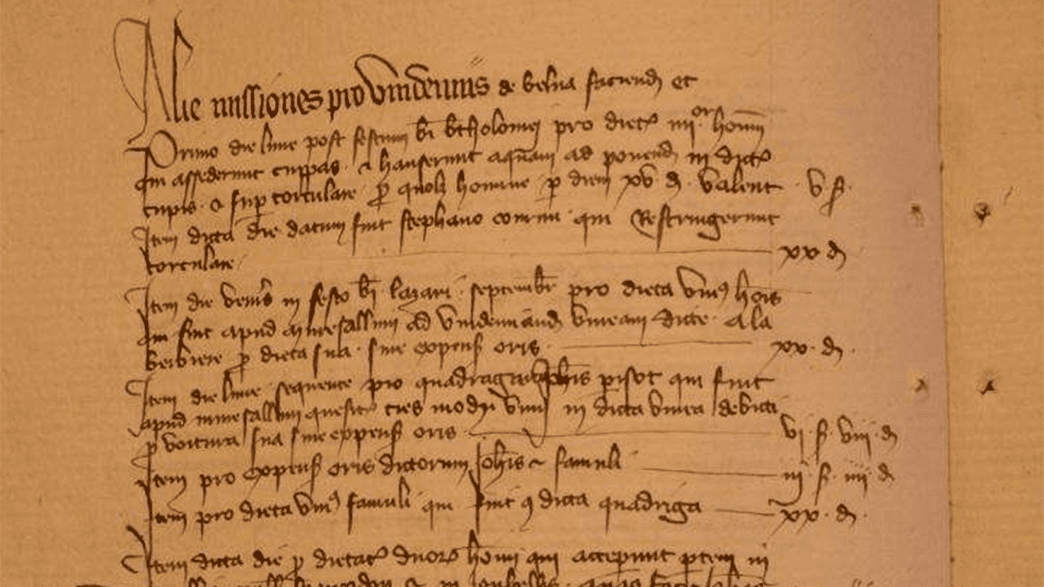 Alie missiones pro vindemiis de belna faciend et
Primo die lune post festum bi btholomei pro diet iiiior homi
qui assederunt cuppas & hauserunt aquam ad ponend in dict
cupis & sup torculare p quolz homine p diem xv d valent v s
Item dicta die datum fuit stephano qui restringerunt
torculare xx d
Item die vens in festo bi lazari septembr pro dieta vni hois
qui fuit apud ad vindemiand vineam dicte a la
berbiere p dieta sua sine expens oris xx d
Item die lune sequente pro quadriga Johis perisot qui fuit
apud quesit tres modii vini in dicta vinea debiti
p voitura sua sine expens oris vi s viii d
Item pro expens oris dictorum Johis & famuli iii s iiii d
Item pro dieta vni famuli qui fuit 9 dicta quadriga xx d
Item dicta die p dietas duor homi qui acceperunt ptem in